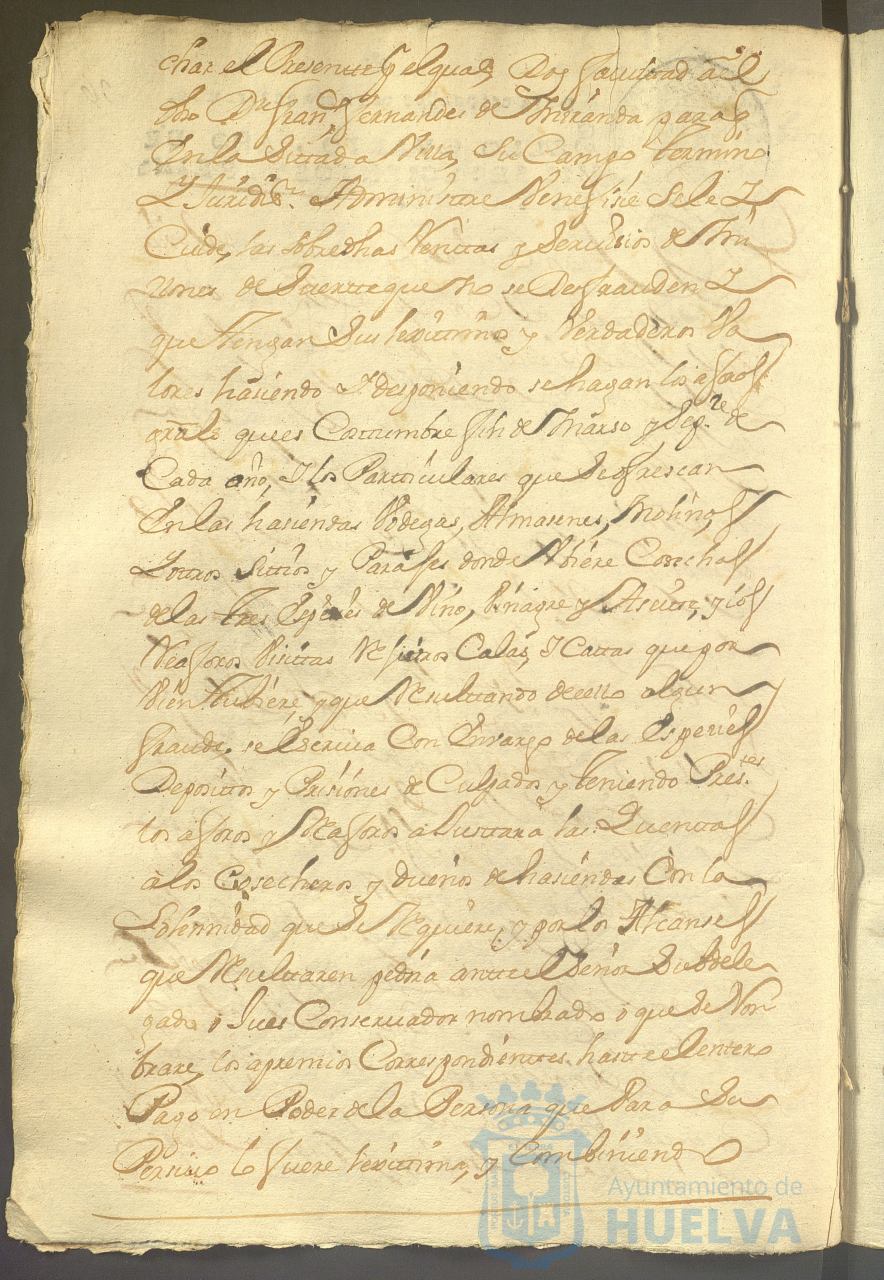 char el Presentte pr el qual Doy facultad a el
dho Dn Franco Fernandes de Miranda para q
En la Dittada Villa, su Campo Termino
Y Juridisn. Administre Venefisie Sele I
Cuide, las sobredhas Renttas y Servisios de Mi
llones de Suertte que no se Defrauden I
que Tengan Sus lexittimos y Verdaderos Va
lores hasiendo I desponiendo se hagan los aforos
grals que es Costtumbre fin de Marso y Sepre de
Cada año, I los Partticulares que Se ofrescan
En las hasiendas Bodegas, Almasenes, Molinos
I ottros Sittios y Parajes donde Ubiere Cosechas
de las Tres Espesies de Vino, Vinagre y Aseitte, y los
Reaforos Visittas Rexistros Calas, I Cattas que por
bien Tubiere, y que Resulttando de ello algun
fraude se Escriva Con Envargo de las Espesies
Deposittos y Prisiones de Culpados y Teniendo Prestes
los aforos y Reaforos ajusttara las Quenttas
a los Cosecheros y dueños de hasiendas Con la
Solemnidad que Se Requiere, y por los Alcanses
que Resulttaren pedira antte el Señor Subdele
gado o Jues Conservador nombrado o que se Nom
brare, los apremios Correspondienttes hastta el entero
Pago en Poder de la Persona que Para Su
Persivo lo fuere lexittima, y Combiniendo
Ayuntamiento de
HUELVA